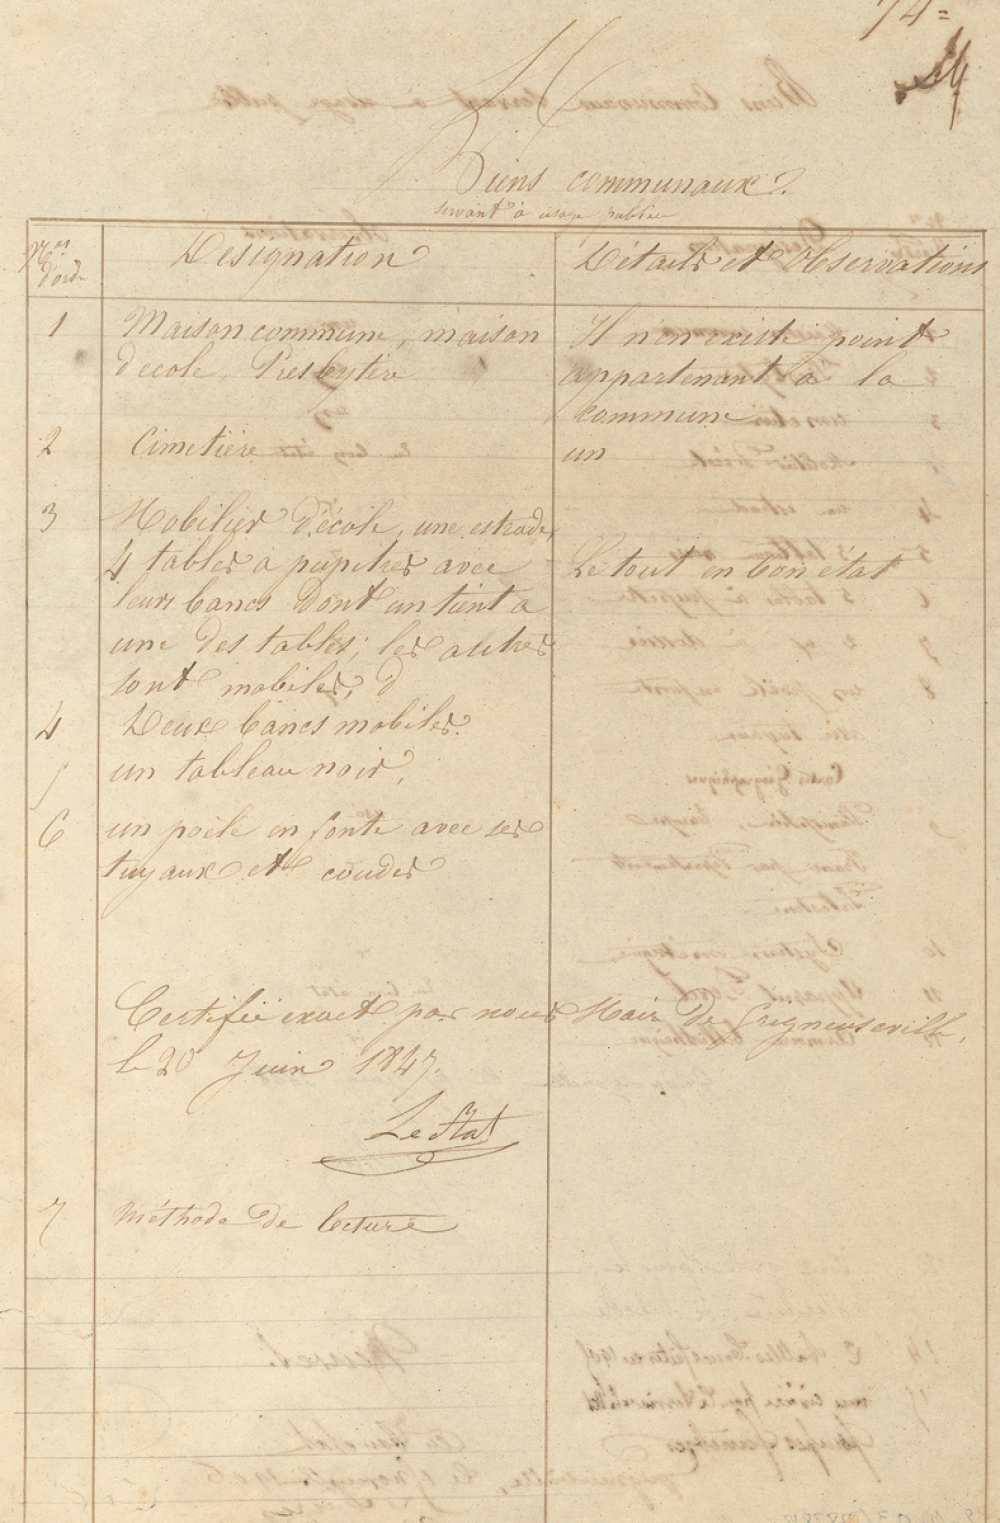 74=
Biens communaux
servant à usage public
Nos
d'ordre
Désignation
Détails et Observations
1
Maison commune, maison
d'école, Presbytère
Il n'en existe point
appartenant à la
commune
2
Cimetière
un
3
Mobilier d'école, une estrade,
4 tables à pupitres avec
leurs bancs dont un tient a
une des tables; les autres
sont mobiles,
Le tout en bon état
4
Deux bancs mobiles
5
un tableau noir,
6
un poële en fonte avec ses
tuyaux et coudes
Certifié exact par nous Maire de Grigneuseville,
le 20 Juin 1847.
7
Méthode de lecture